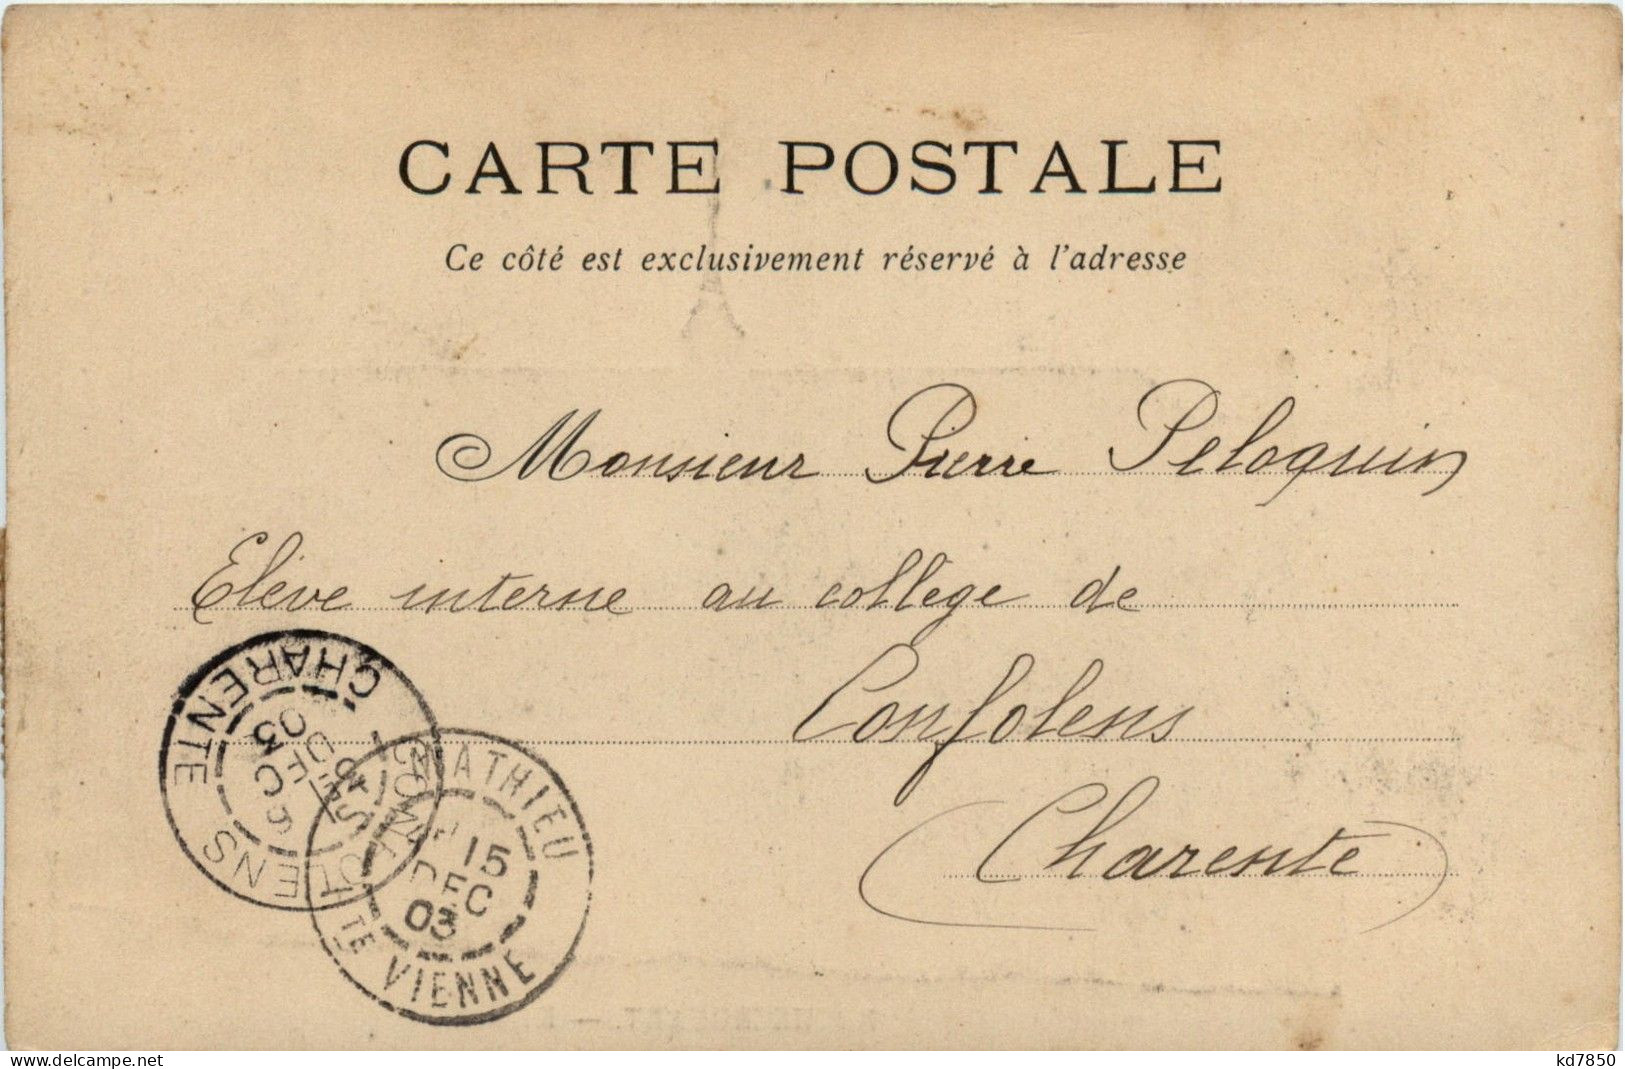 CARTE POSTALE
Ce côté est exclusivement réservé à l'adresse
Monsieur Pierre Peloquin
Elève interne au collège de
Confolens
Charente
CHARENTE
DEC
03
MATHIEU
15
DEC
03
TE VIENNE
delcampe.net
kd7850